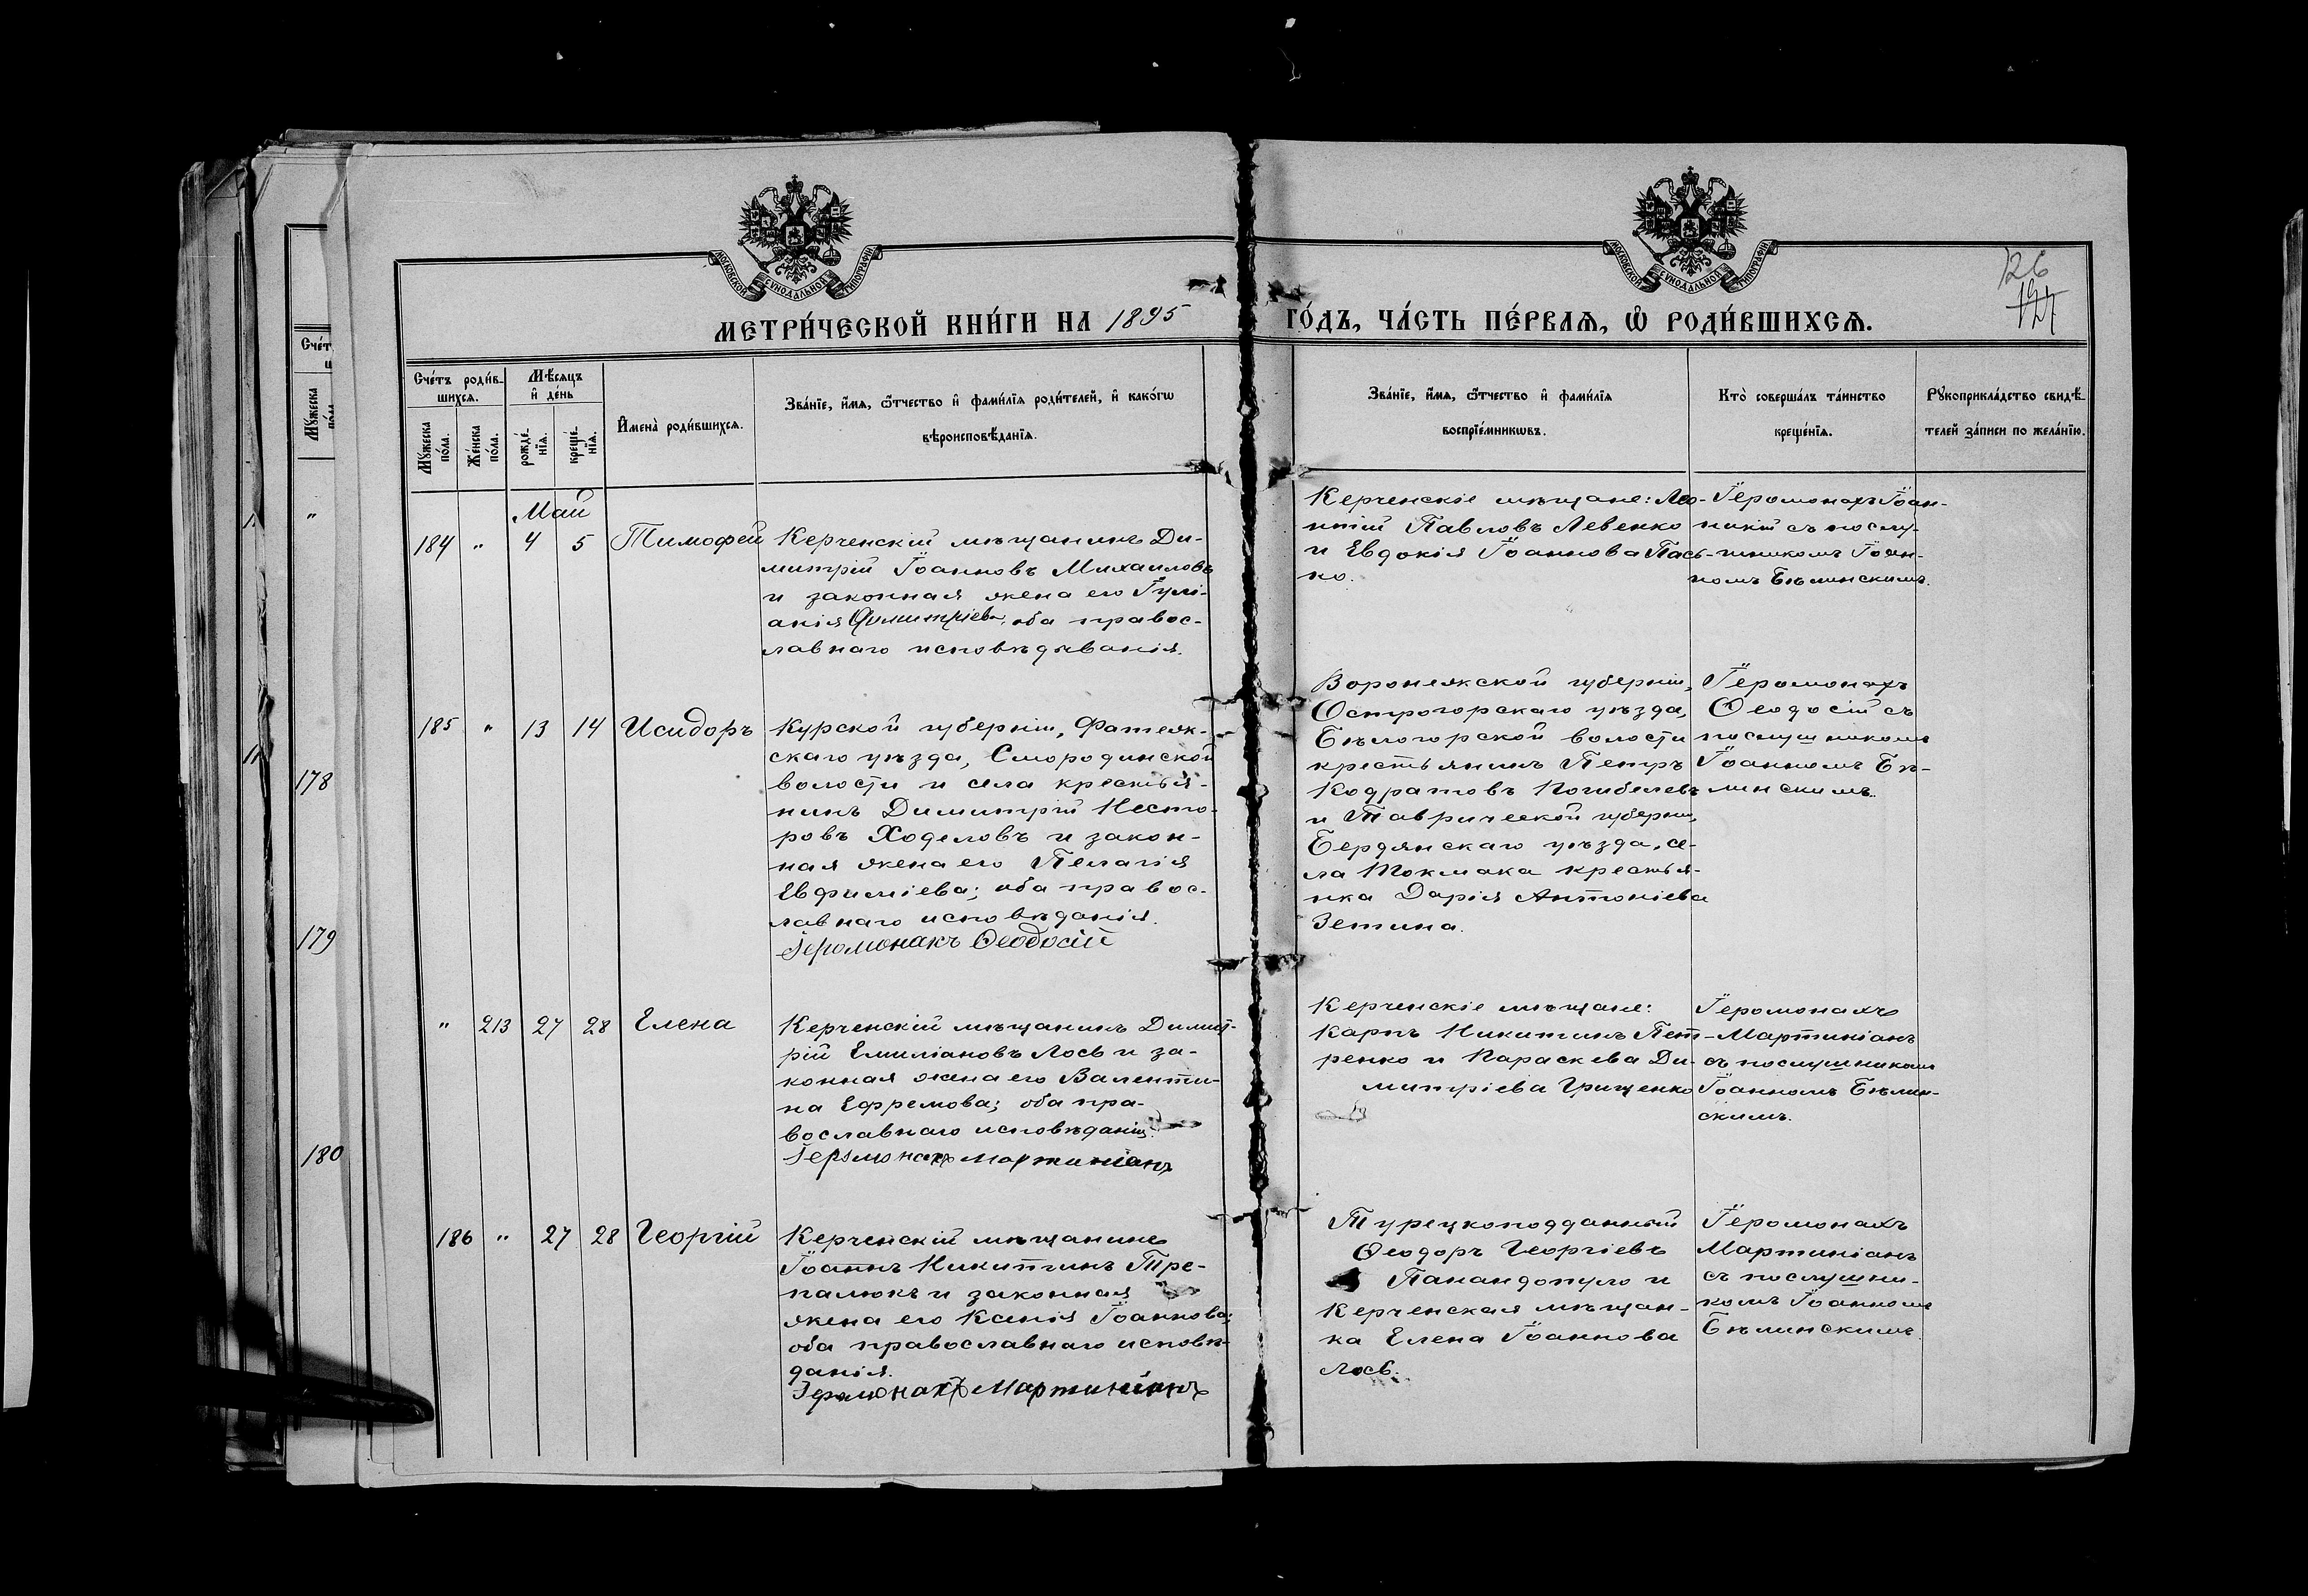 МОСКОВСКОЙ СУНОДАЛЬНОЙ ТИПОГРАФІИ
МОСКОВСКОЙ СУНОДАЛЬНОЙ ТИПОГРАФІИ
126
127
МЕТРИ́ЧЕСКОЙ КНИ́ГИ НА 1895 ГО́ДЪ, ЧА́СТЬ ПЕ́РВАѦ, Ѿ РОДИ́ВШИХСѦ.
Сче́тъ роди́в-
шихсѧ.
Мꙋ́жеска по́ла.
Же́нска по́ла.
Мѣ́сѧцъ
и҆ де́нь
рожде́-
нїѧ.
креще́-
нїѧ.
И҆мена̀ роди́вшихсѧ.
Зва́нїе, и҆́мѧ, ѻ҆́тчество и҆ фами́лїѧ роди́телей, и҆ како́гѡ
вѣроисповѣ́данїѧ.
Зва́нїе, и҆́мѧ, ѻ҆́тчество и҆ фами́лїѧ
воспрїе́мникѡвъ.
Кто̀ соверша́лъ та́инство
креще́нїѧ.
Рꙋкоприкла́дство свидѣ́-
телей за́писи по жела́нїю.
Май
184 " 4 5 Тимофей
Керченскій мѣщанинъ Ди-
митрій Іоанновъ Михаиловъ
и законная жена его Іулі-
анія Димитріева, оба правос-
лавнаго исповѣдыванія.
Керченскіе мѣщане: Лео-
нтій Павловъ Левенко
и Евдокія Іоаннова Пась-
ко.
Іеромонахъ Іоан-
никій съ послу-
шникомъ Іоан-
номъ Бѣлинскимъ.
185 " 13 14 Исидоръ
Курской губерніи, Фатеж-
скаго уѣзда, Смородинской
волости и села крестья-
нинъ Димитрій Несто-
ровъ Ходеловъ и закон-
ная жена его Пелагія
Евфиміева; оба правос-
лавнаго исповѣданія.
Іеромонахъ Ѳеодосій
Воронежской губерніи,
Острогорскаго уѣзда,
Бѣлогорской волости
крестьянинъ Петръ
Кодратовъ Погибелевъ
и Таврической губерніи,
Бердянскаго уѣзда, се-
ла Токмака крестья-
нка Дарія Антоніева
Зетина.
Іеромонахъ
Ѳеодосій съ
послушникомъ
Іоанномъ Бѣ-
линскимъ.
" 213 27 28 Елена
Керченскій мѣщанинъ Димит-
рій Емиліановъ Лось и за-
конная жена его Валенти-
на Ефремова; оба пра-
вославнаго исповѣданія.
Іеромонахъ Мартиніанъ
Керченскіе мѣщане:
Карпъ Никитинъ Пет-
ренко и Параскева Ди-
митріева Грищенко
Іеромонахъ
Мартиніанъ
съ послушникомъ
Іоанномъ Бѣлин-
скимъ.
186 " 27 28 Георгій
Керченскій мѣщанинъ
Іоаннъ Никитинъ Тре-
палюкъ и законная
жена его Ксенія Іоаннова;
оба православнаго исповѣ-
данія.
Іеромонахъ Мартиніанъ
Турецкоподданный
Ѳеодоръ Георгіевъ
Панандопуло и
Керченская мѣщан-
ка Елена Іоаннова
Лось.
Іеромонахъ
Мартиніанъ
съ послушни-
комъ Іоанномъ
Бѣлинскимъ.
Сче́т
Мꙋ́жеска
"
178
179
180